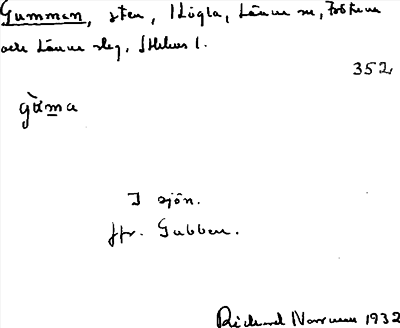 Gumman, sten, Högla, Länna sn, Frötuna
och Länna skg, Sthlms l.
352
gùma
I sjön.
Jfr. Gubben.
Richard Norrman 1932